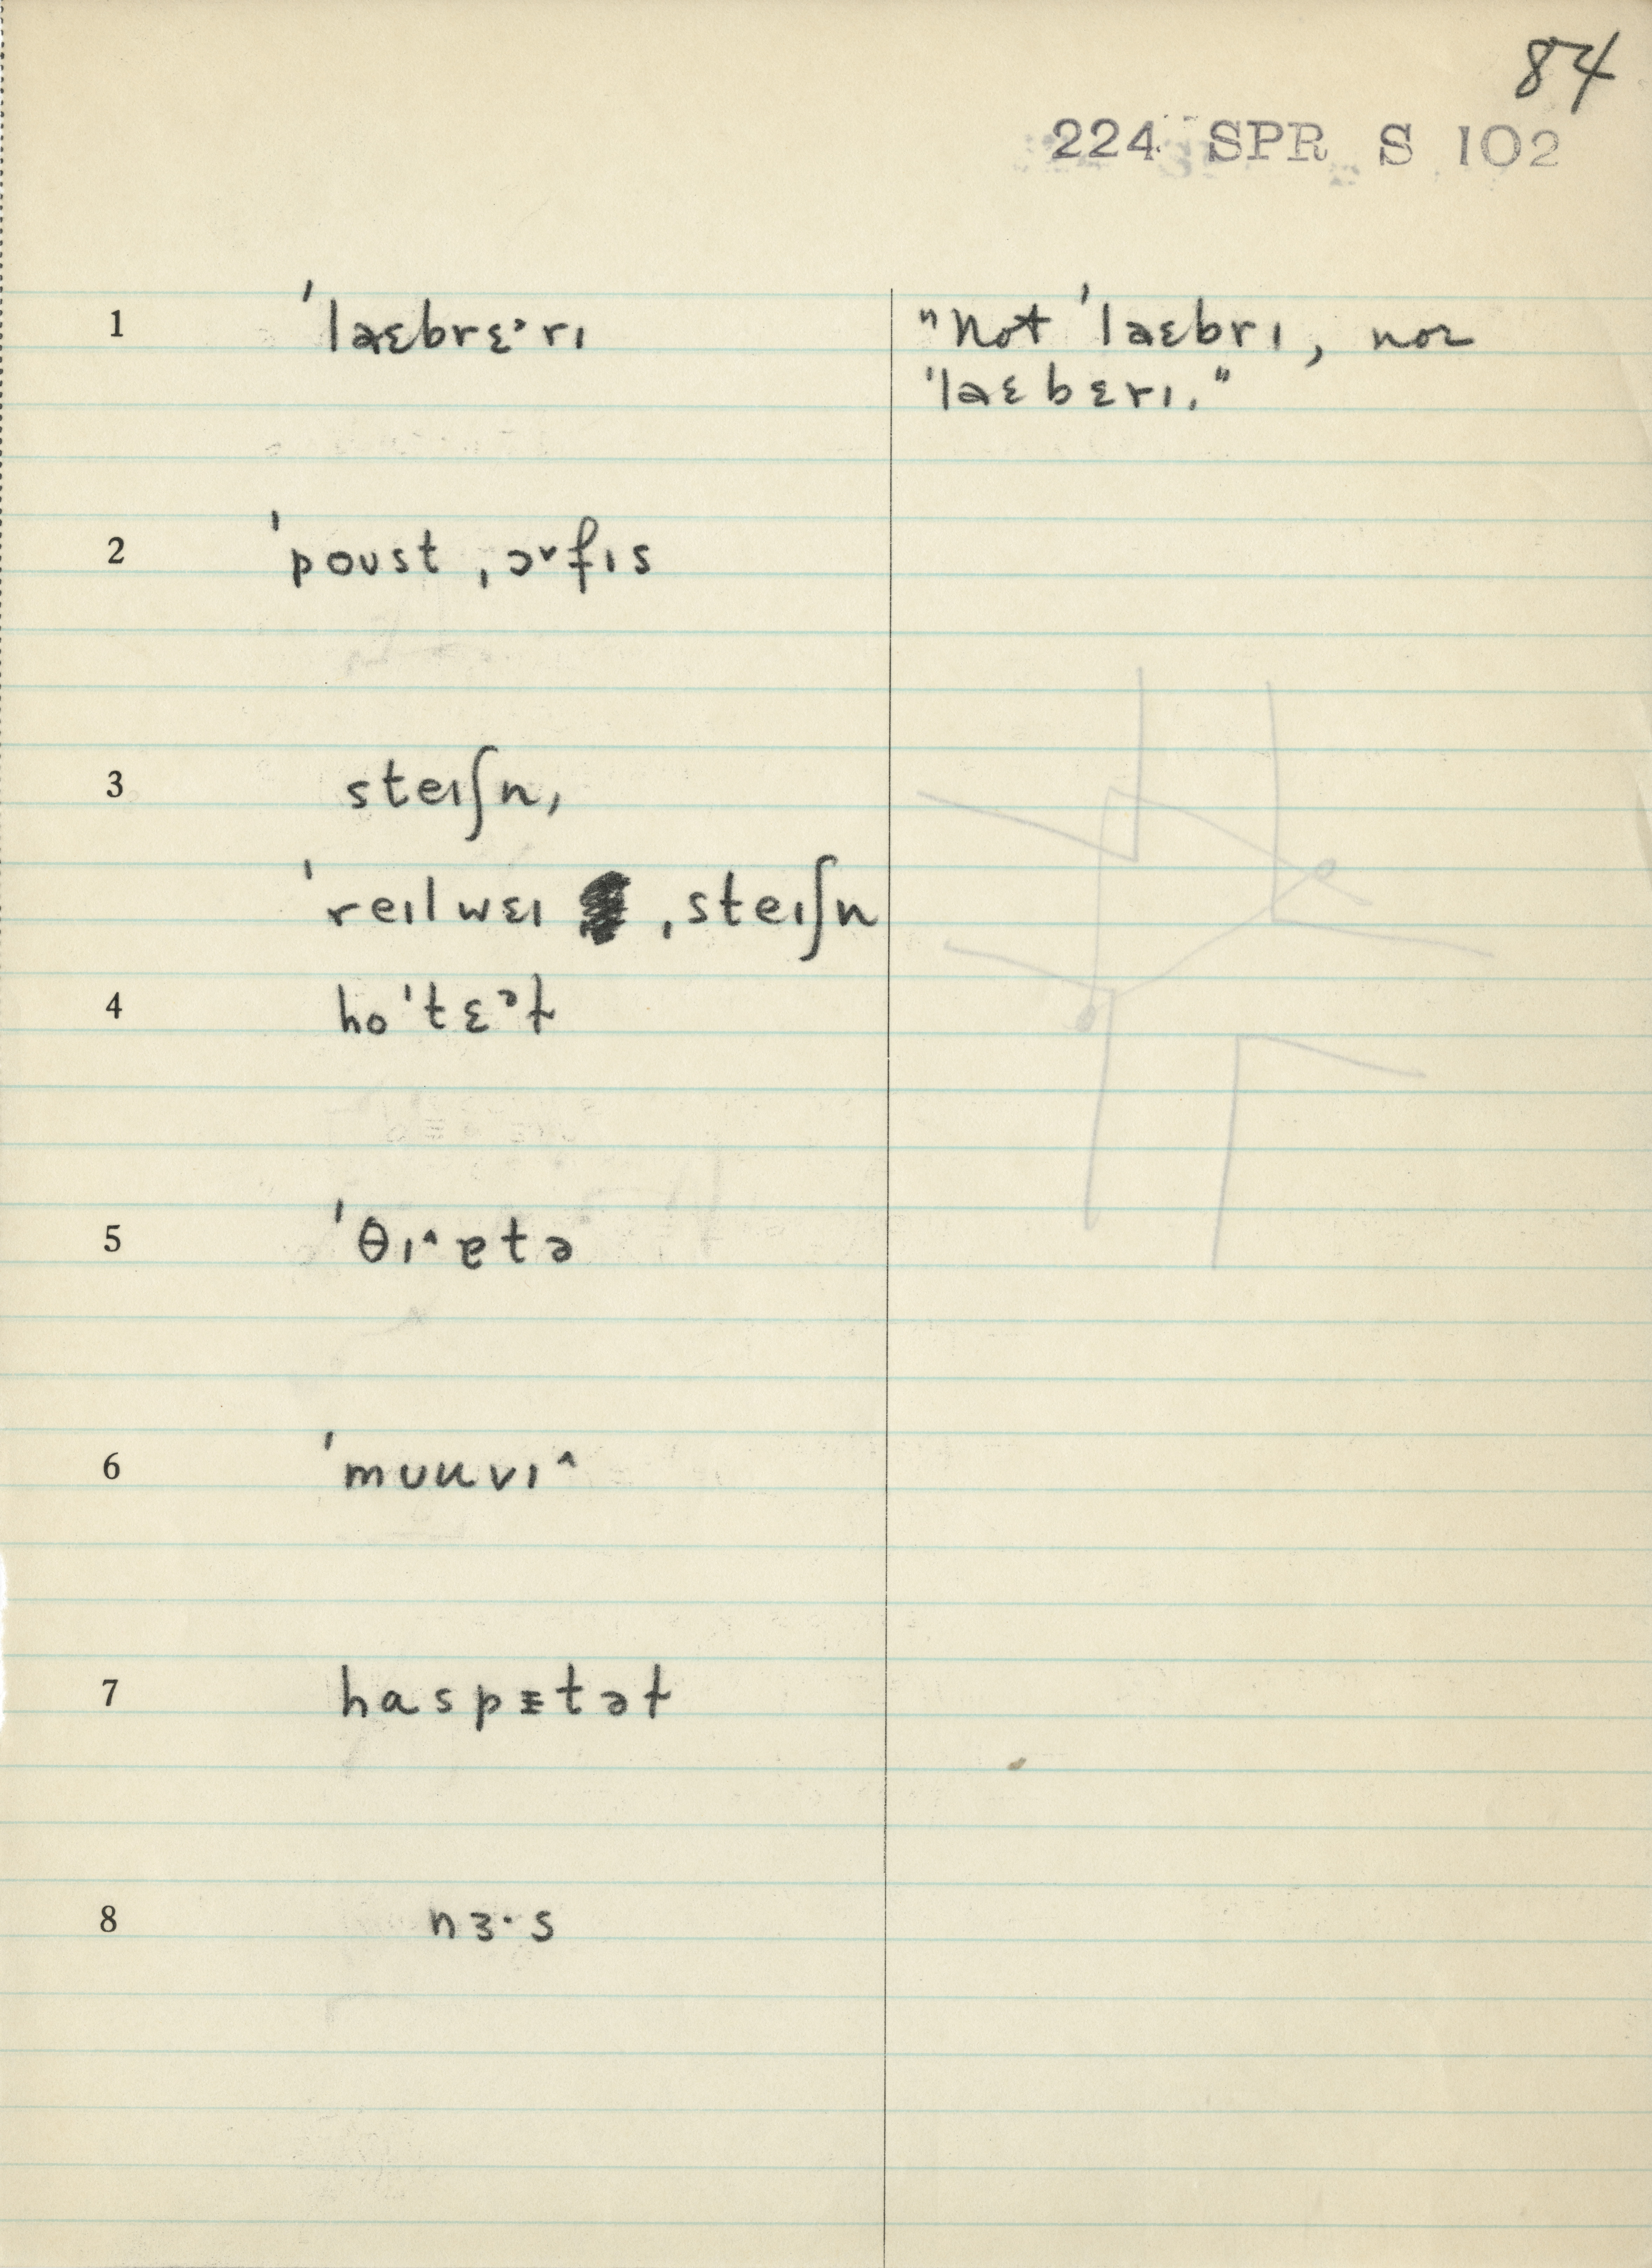 84
224 SPR S 102
1 ˈlaɛbrɛᵊrɪ "Not ˈlaɛbrɪ, nor
ˈlaɛbɛrɪ."
2 ˈpoʊst ˌɔ˅fɪs
3 steɪʃn,
ˈreɪlwɛɪ ˌsteɪʃn
4 hoˈtɛᵊɫ
5 ˈθɪ^ɐtə
6 ˈmʊuvɪ^
7 haspɪtəɫ
8 nɜ·s